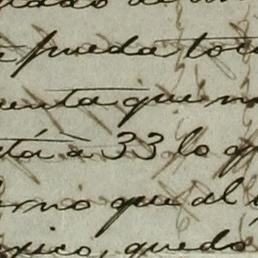 pueda toca
enta que no
tá à 33 lo q
rno que al
xico, quedo